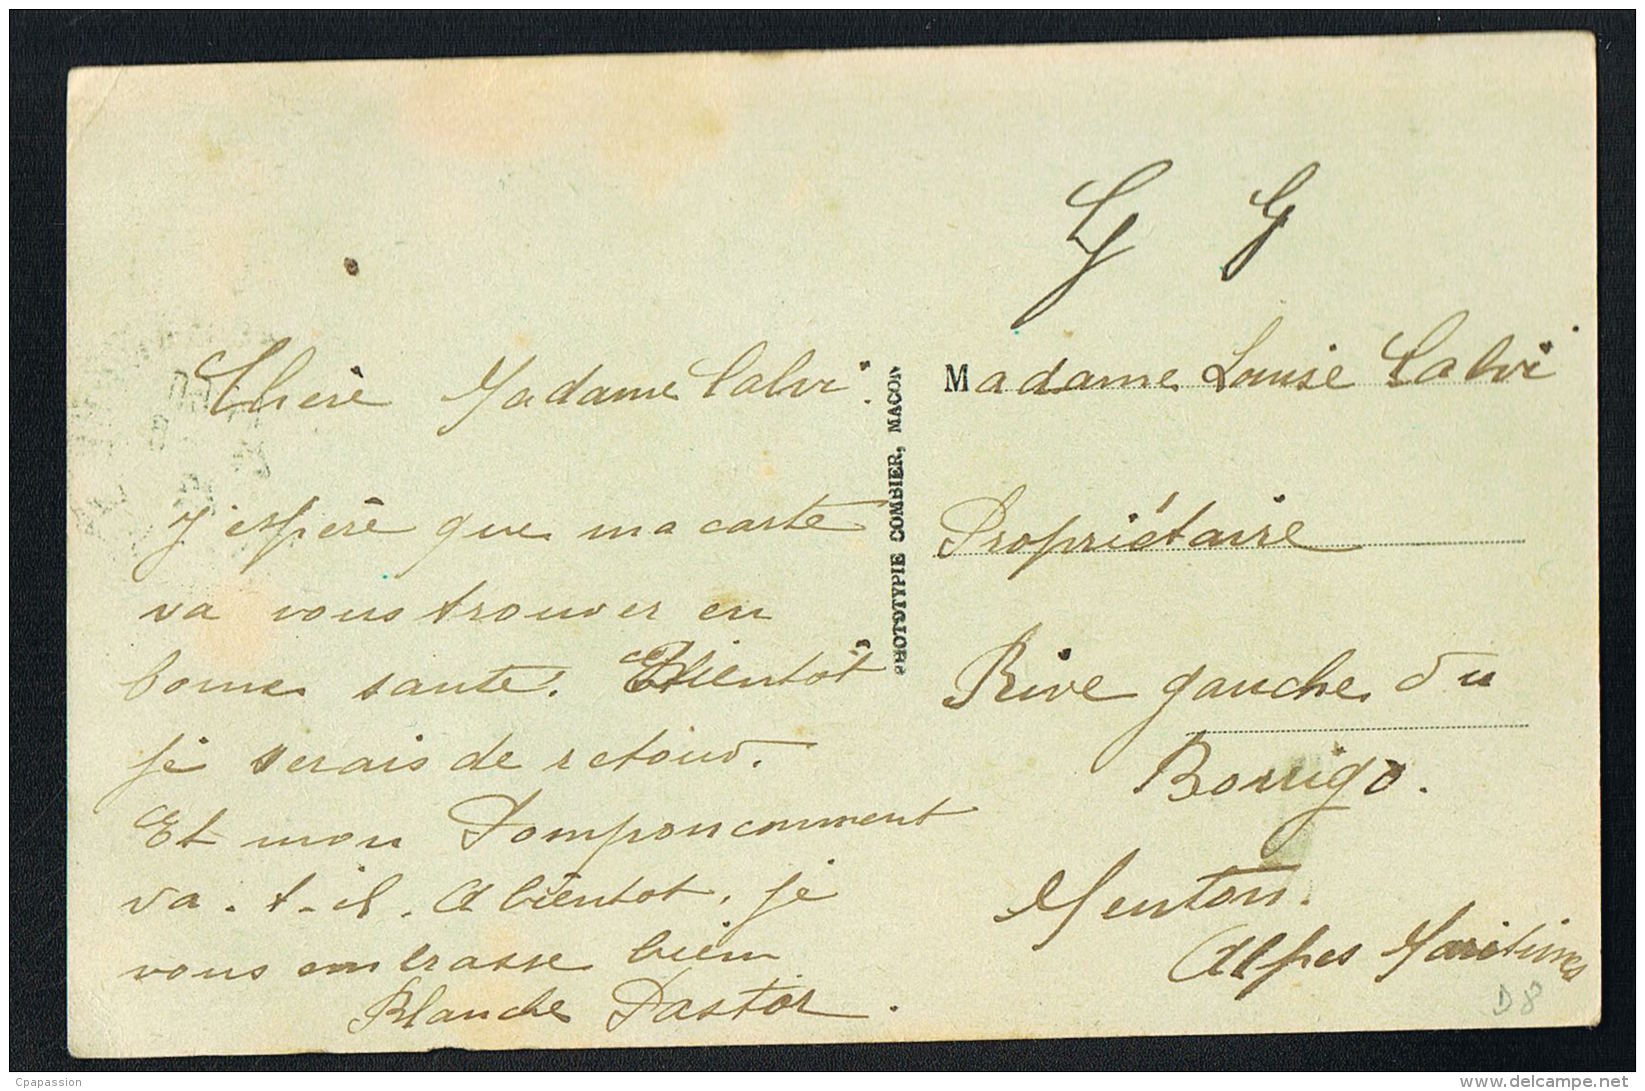 Chère Madame Calvi.
J'espère que ma carte
va vous trouver en
bonne santé. Bientot
je serais de retour.
Et mon Pomponcomment
va-t-il. A bientot, je
vous embrasse bien
Blanche Pastor.
PHOTOTYPIE COMBIER, MACON
G G
Madame Louise Calvi
Propriétaire
Rive gauche du
Borrigo.
Menton.
Alpes Maritimes
D8
Cpapassion
www.delcampe.net